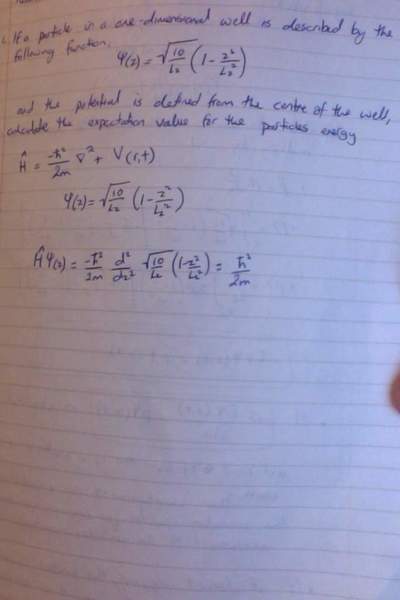 If a particle in a one-dimensional well is described by the
following function:
Ψ(z) = √(10/Lz) (1 - z²/Lz²)
and the potential is defined from the centre of the well,
calculate the expectation value for the particles energy
Ĥ = -ħ²/2m ∇² + V(r,t)
Ψ(z) = √(10/Lz) (1 - z²/Lz²)
ĤΨ(z) = -ħ²/2m d²/dz² √(10/Lz) (1 - z²/Lz²) = ħ²/2m